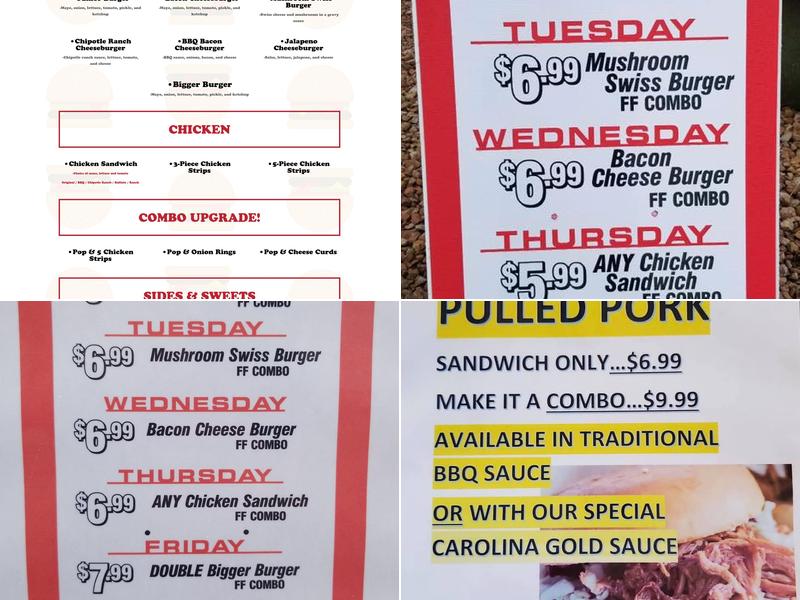 Burger
•Mayo, onion, lettuce, tomato, pickle, and ketchup
•Mayo, onion, lettuce, tomato, pickle, and ketchup
•Swiss cheese and mushrooms in a gravy sauce
•Chipotle Ranch Cheeseburger
•Chipotle ranch sauce, lettuce, tomato, and cheese
•BBQ Bacon Cheeseburger
•BBQ sauce, onions, bacon, and cheese
•Jalapeno Cheeseburger
•Salsa, lettuce, jalapeno, and cheese
•Bigger Burger
•Mayo, onion, lettuce, tomato, pickle, and ketchup
CHICKEN
•Chicken Sandwich
•Choice of mayo, lettuce and tomato
Original / BBQ / Chipotle Ranch / Buffalo / Ranch
•3-Piece Chicken Strips
•5-Piece Chicken Strips
COMBO UPGRADE!
•Pop & 5 Chicken Strips
•Pop & Onion Rings
•Pop & Cheese Curds
SIDES & SWEETS
TUESDAY
$6.99 Mushroom
Swiss Burger
FF COMBO
WEDNESDAY
$6.99 Bacon
Cheese Burger
FF COMBO
THURSDAY
$5.99 ANY Chicken
Sandwich
FF COMBO
FF COMBO
TUESDAY
$6.99 Mushroom Swiss Burger
FF COMBO
WEDNESDAY
$6.99 Bacon Cheese Burger
FF COMBO
THURSDAY
$6.99 ANY Chicken Sandwich
FF COMBO
FRIDAY
$7.99 DOUBLE Bigger Burger
FF COMBO
PULLED PORK
SANDWICH ONLY...$6.99
MAKE IT A COMBO...$9.99
AVAILABLE IN TRADITIONAL
BBQ SAUCE
OR WITH OUR SPECIAL
CAROLINA GOLD SAUCE